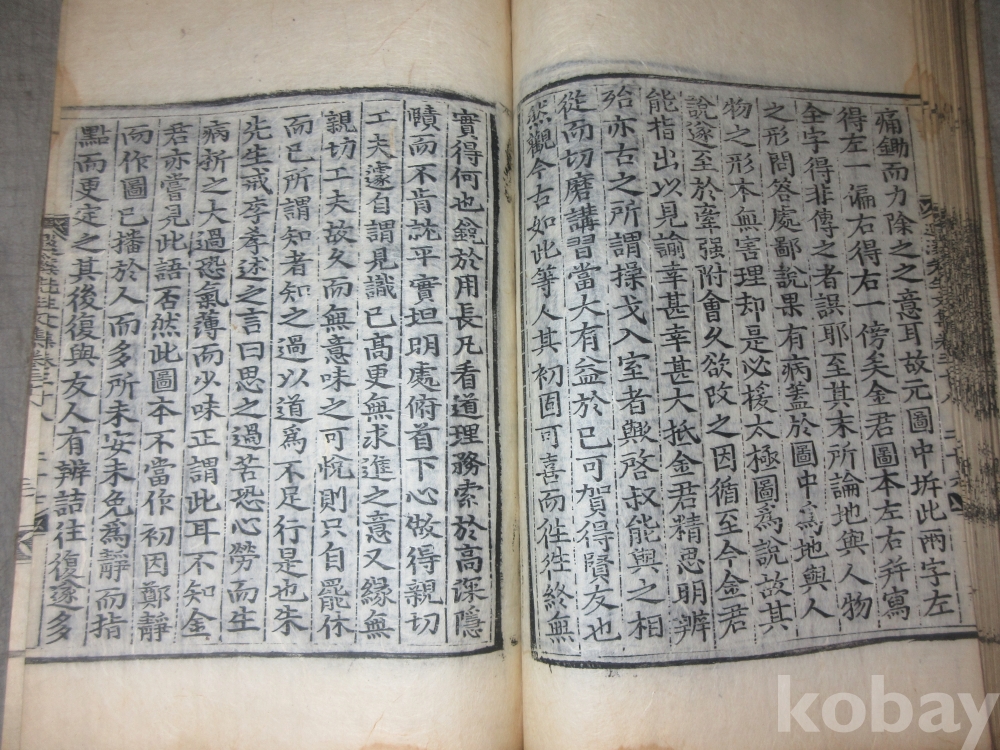 痛鋤而力除之之意耳故元圖中坼此兩字左
得左一偏右得右一傍矣金君圖本左右幷寫
全字得非傳之者誤耶至其末所論地與人物
之形問答處鄙說果有病蓋於圖中爲地與人
物之形本無害理却是必援太極圖爲說故其
說遂至於牽强附會久欲改之因循至今金君
能指出以見諭幸甚幸甚大抵金君精思明辨
殆亦古之所謂操戈入室者歟啓叔能與之相
從而切磨講習當大有益於已可賀得賢友也
然觀今古如此等人其初固可喜而往往終無
實得何也銳於用長凡看道理務索於高深隱
賾而不肯就平實坦明處俯首下心做得親切
工夫遽自謂見識已高更無求進之意又緣無
親切工夫故久而無意味之可悅則只自罷休
而已所謂知者知之過以道爲不足行是也朱
先生戒李孝述之言曰思之過苦恐心勞而生
病析之大過恐氣薄而少味正謂此耳不知金
君亦嘗見此語否然此圖本不當作初因鄭靜
而作圖已播於人而多所未安未免爲靜而指
點而更定之其後復與友人有辨詰往復遂多
退溪先生文集卷三十八
kobay